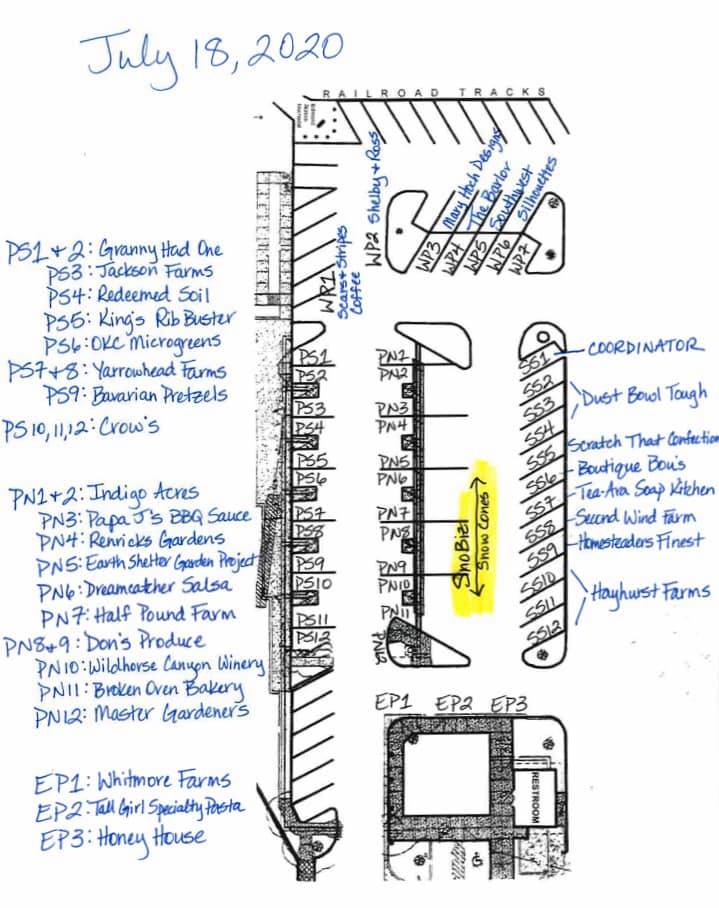 July 18, 2020
RAILROAD TRACKS
WP1 Scars & Stripes Coffee
WP2 Shelby & Ross
WP3 Mary Hoch Designs
WP4 The Barlor
WP5 Southwest Silhouettes
WP6
WP7
PS1 + 2: Granny Had One
PS3: Jackson Farms
PS4: Redeemed Soil
PS5: King's Rib Buster
PS6: OKC Microgreens
PS7+8: Yarrowhead Farms
PS9: Bavarian Pretzels
PS10, 11, 12: Crow's
PN1 + 2: Indigo Acres
PN3: Papa J's BBQ Sauce
PN4: Renricks Gardens
PN5: Earth Shelter Garden Project
PN6: Dreamcatcher Salsa
PN7: Half Pound Farm
PN8+9: Don's Produce
PN10: Wildhorse Canyon Winery
PN11: Broken Oven Bakery
PN12: Master Gardeners
EP1: Whitmore Farms
EP2: Tall Girl Specialty Pasta
EP3: Honey House
PS1
PS2
PS3
PS4
PS5
PS6
PS7
PS8
PS9
PS10
PS11
PS12
PN1
PN2
PN3
PN4
PN5
PN6
PN7
PN8
PN9
PN10
PN11
PN12
SnoBizl
Snow Cones
SS1
SS2
SS3
SS4
SS5
SS6
SS7
SS8
SS9
SS10
SS11
SS12
COORDINATOR
Dust Bowl Tough
Scratch That Confection
Boutique Bou's
Tea-Ara Soap Kitchen
Second Wind Farm
Homesteaders Finest
Hayhurst Farms
EP1 EP2 EP3
RESTROOM